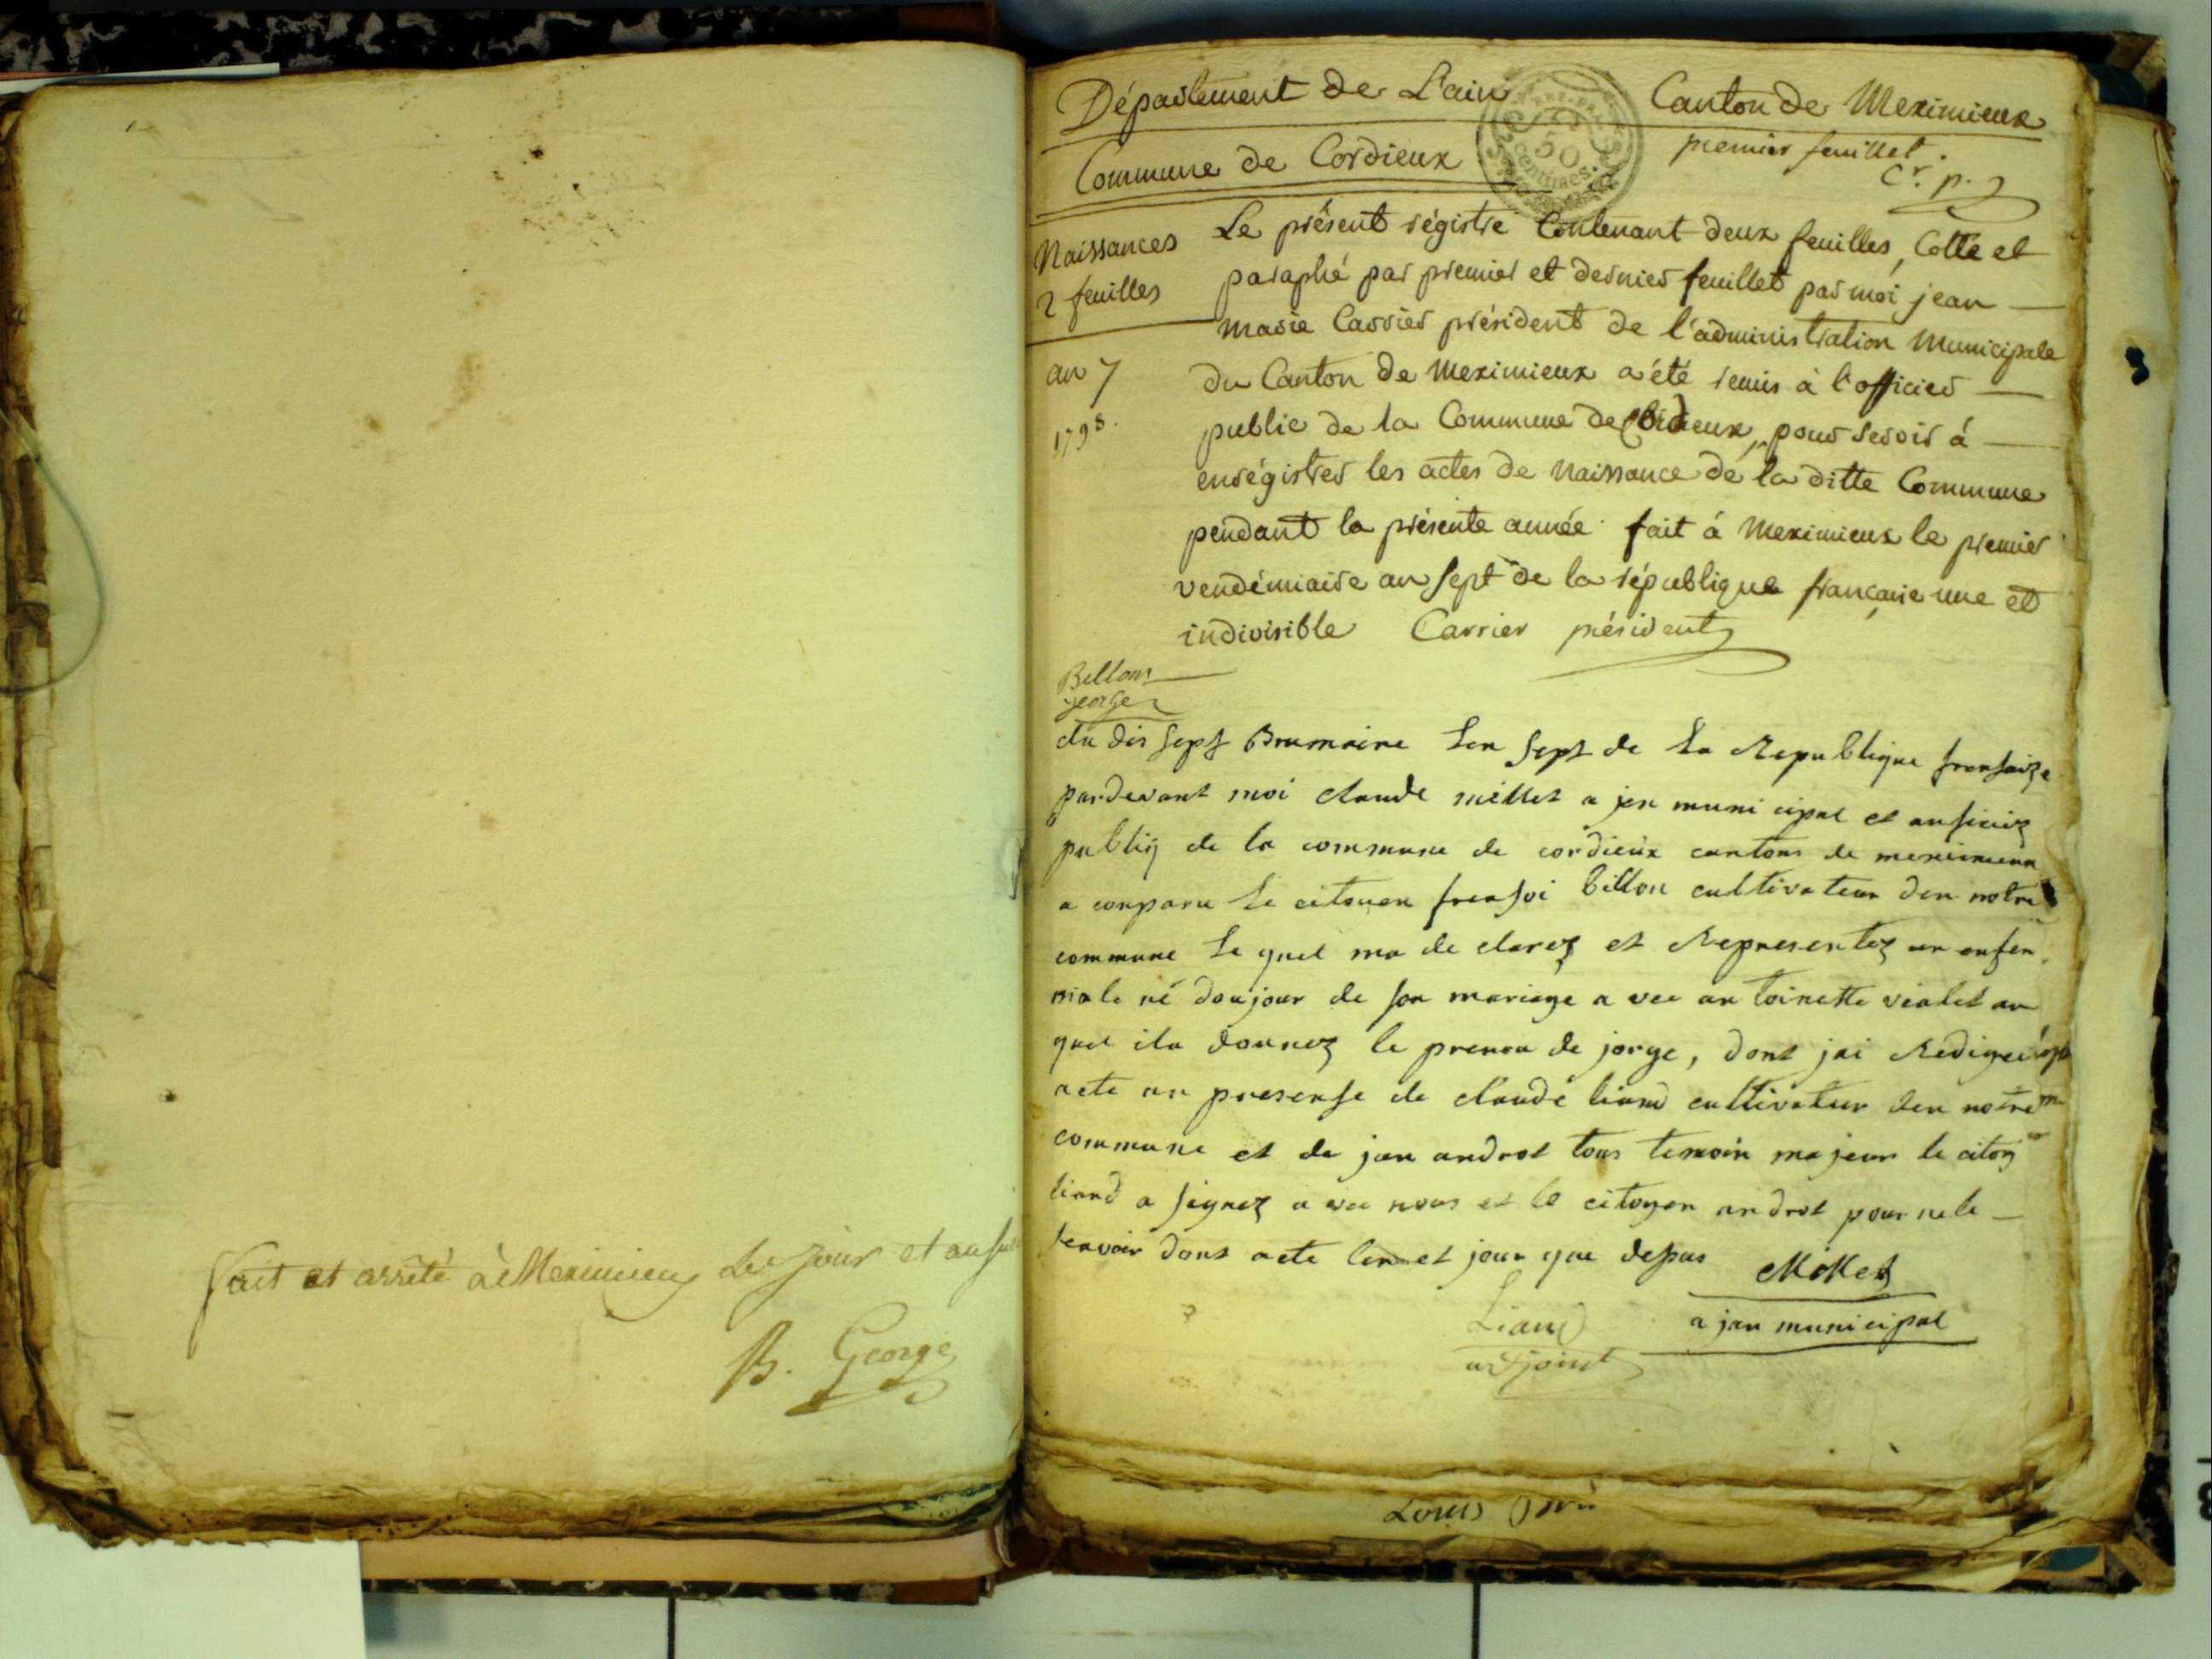 fait et arrêté à Meximieux les jour et an su
B. George
Département de L'ain Canton de Meximieux
50 centimes.
Commune de Cordieux premier feuillet.
Cr. p.
Naissances
2 feuilles
an 7
1798.
Le présent régistre Contenant deux feuilles, Cotté et
paraphé par premier et dernier feuillet par moi jean
marie Carrier président de l'administration Municipale
du Canton de Meximieux a été remis à l'officier
public de la Commune de Cordieux, pour servir à
enrégistrer les actes de Naissance de la ditte Commune
pendant la présente année. fait à Meximieux le premier
vendémiaire an sept de la république française une et
indivisible Carrier président
Billon
george
du dis sept Brumaire Lan sept de La Republique fransaize
pardevant moi claude millet a jen muni cipal et aufisiez
publiq de la commune de cordieux cantons de meximieux
a conparu Le citouen fransoi billon cultivateur den notre
commune Le quel ma de clarez et Representez un enfen
male né doujour de son mariage a vec an toinette violet au
quel ila donnez le prenon de jorge, dont jai Redigé
acte an presense de claude liand cultivateur den notre
commune et de jan androt tous temoin majeur le citoy
liand a signez a vec nous et le citoyen androt pour ne le
scavoir dont acte lan et jour que depus Millet
Liand a jan municipal
adjoint
Louis